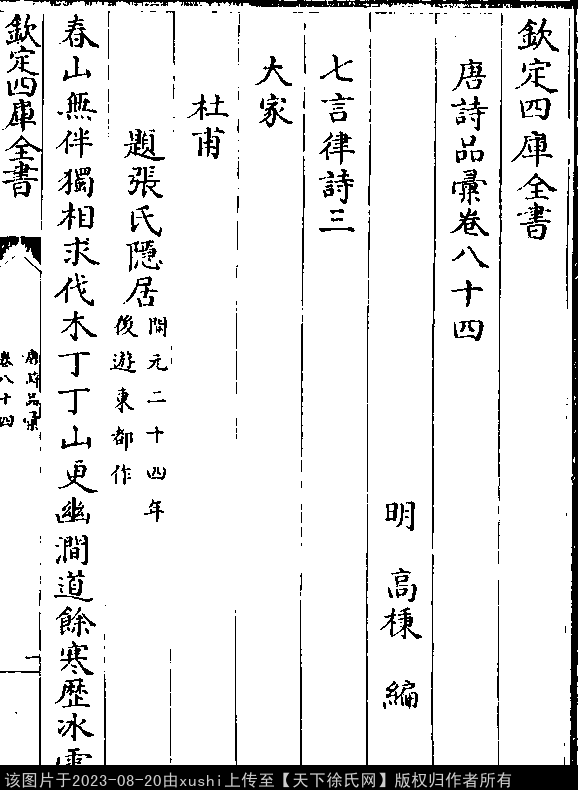 欽定四庫全書
唐詩品彚卷八十四
明 高棅 編
七言律詩三
大家
杜甫
題張氏隱居
開元二十四年
後遊東都作
春山無伴獨相求伐木丁丁山更幽澗道餘寒歷冰雪
欽定四庫全書
唐詩品彚
卷八十四
一
该图片于2023-08-20由xushi上传至【天下徐氏网】版权归作者所有